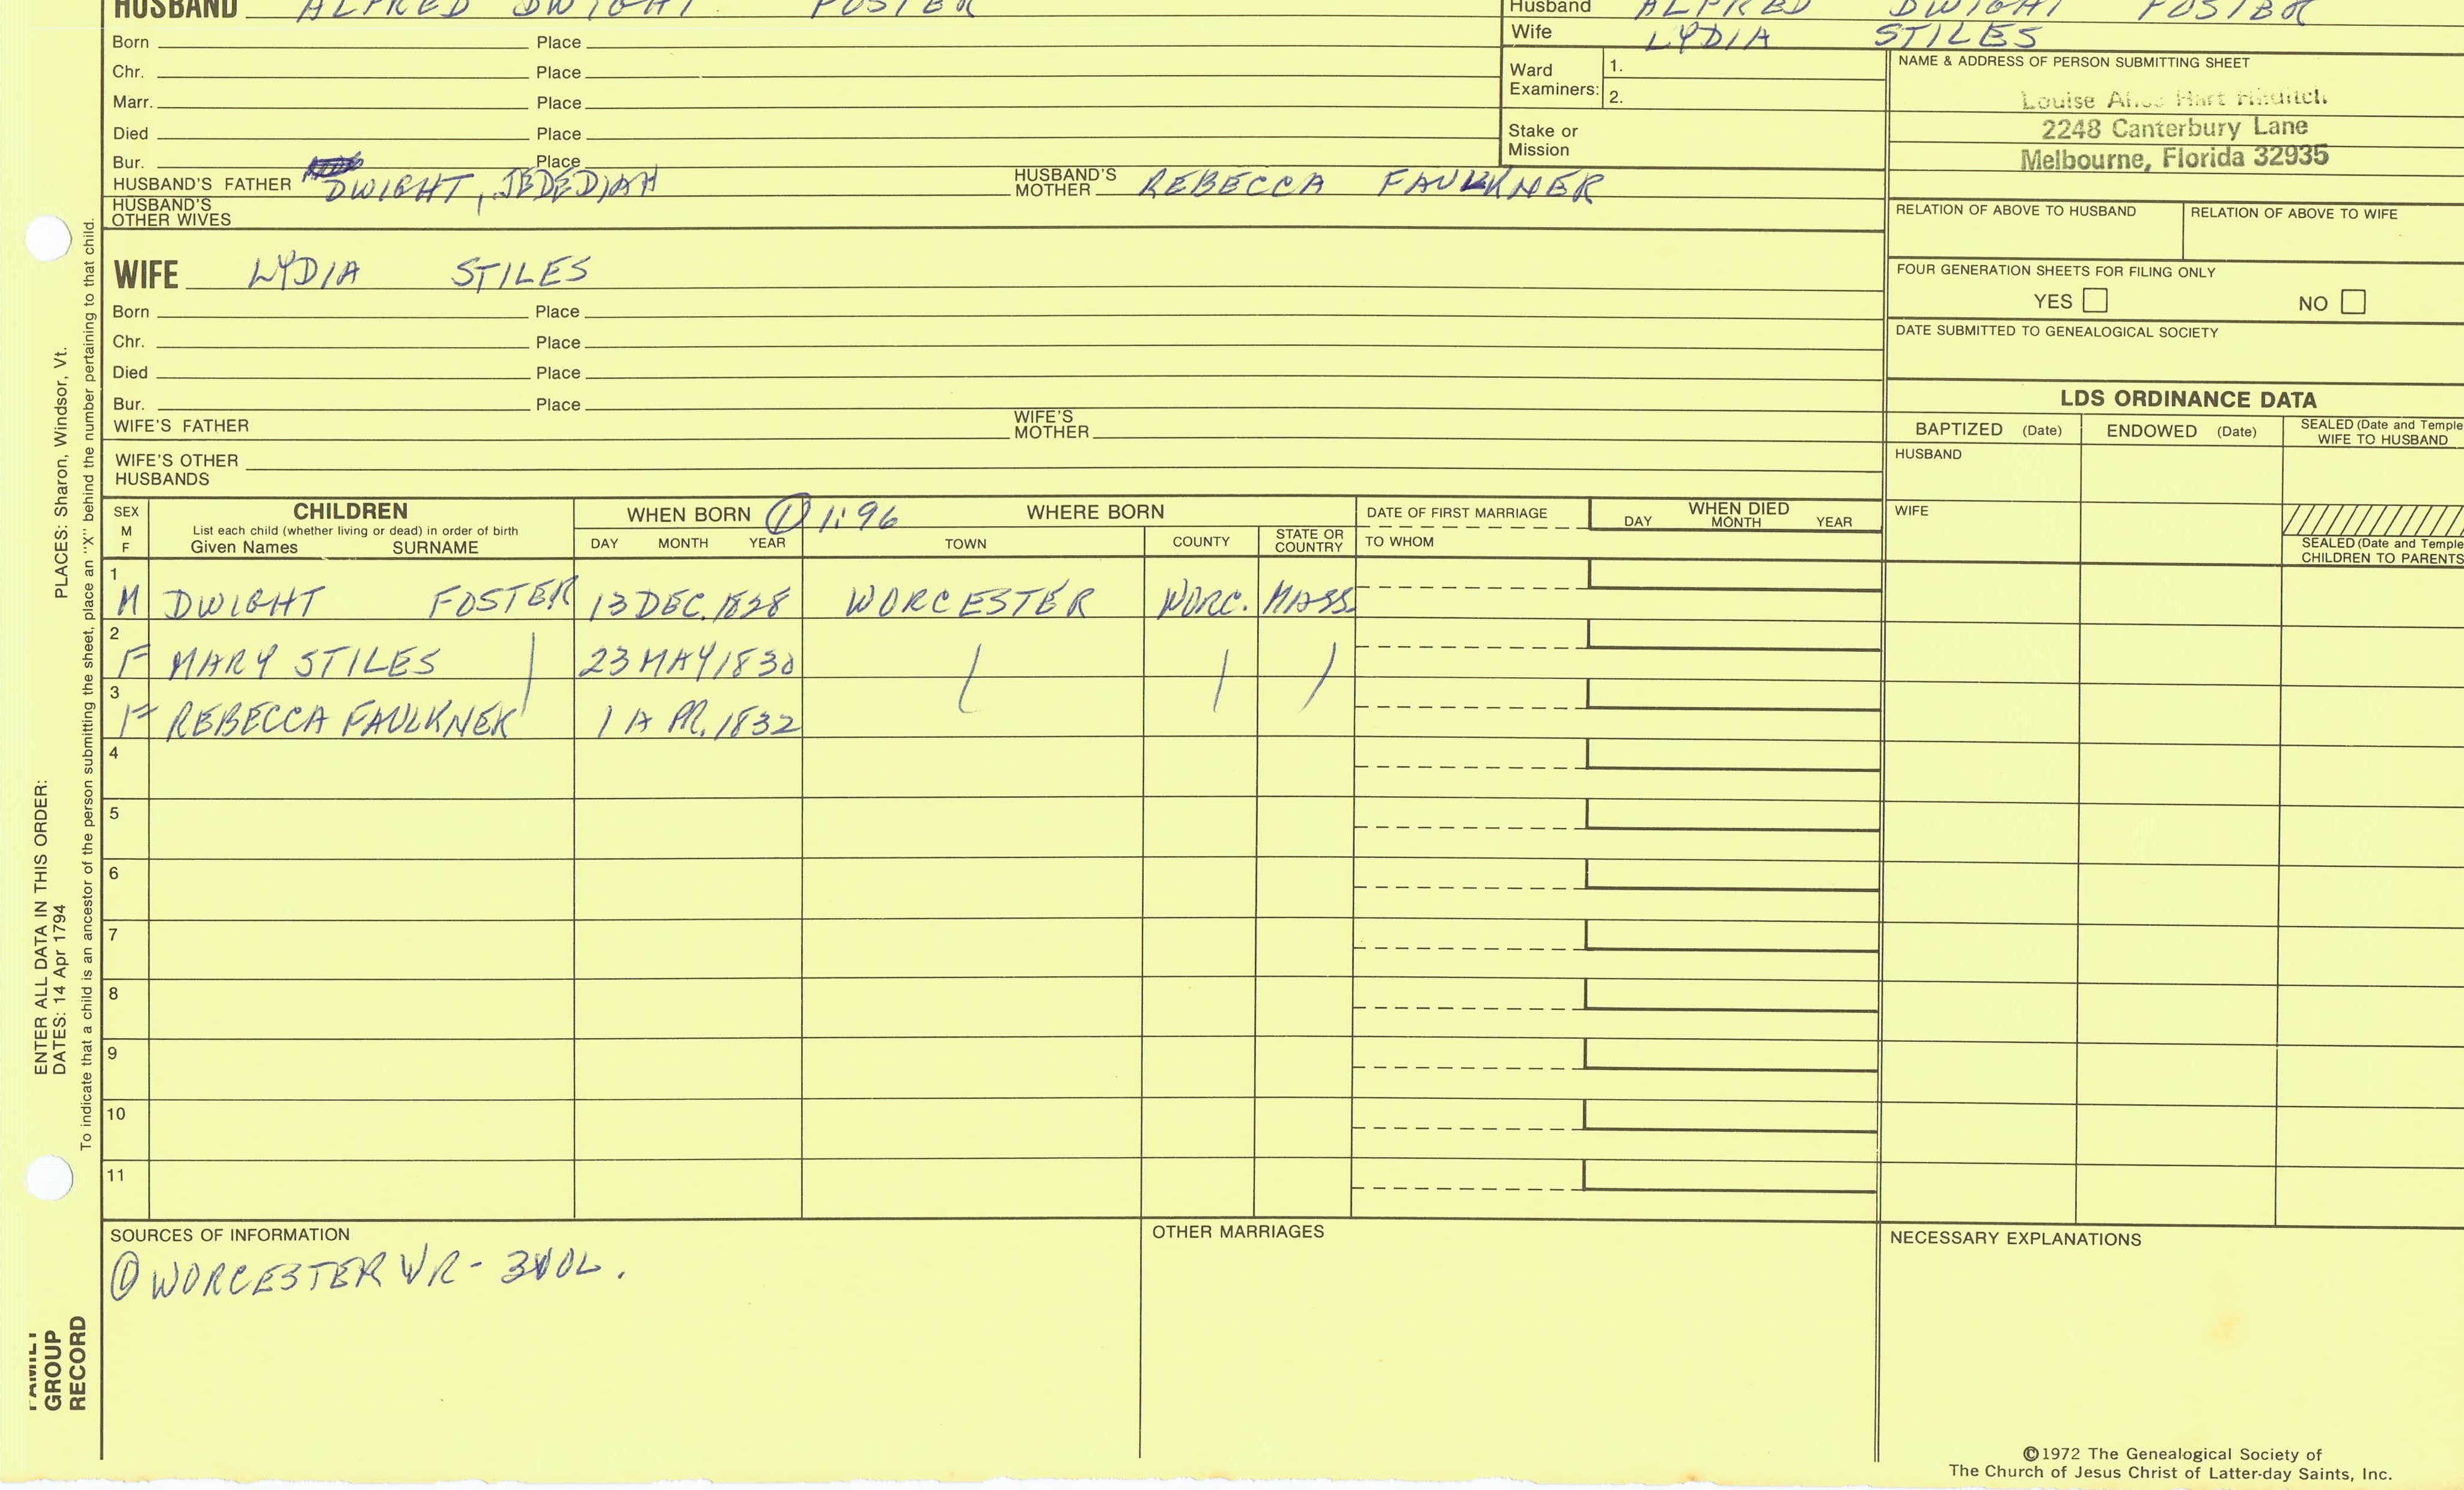 HUSBAND ALFRED DWIGHT FOSTER
Born Place
Chr. Place
Marr. Place
Died Place
Bur. Place
HUSBAND'S FATHER DWIGHT, JEDEDIAH HUSBAND'S MOTHER REBECCA FAULKNER
HUSBAND'S OTHER WIVES
Husband ALFRED DWIGHT FOSTER
Wife LYDIA STILES
Ward Examiners: 1.
2.
Stake or Mission
NAME & ADDRESS OF PERSON SUBMITTING SHEET
Louise Hart
2248 Canterbury Lane
Melbourne, Florida 32935
RELATION OF ABOVE TO HUSBAND RELATION OF ABOVE TO WIFE
FOUR GENERATION SHEETS FOR FILING ONLY
YES NO
DATE SUBMITTED TO GENEALOGICAL SOCIETY
WIFE LYDIA STILES
Born Place
Chr. Place
Died Place
Bur. Place
WIFE'S FATHER WIFE'S MOTHER
WIFE'S OTHER HUSBANDS
LDS ORDINANCE DATA
BAPTIZED (Date) ENDOWED (Date) SEALED (Date and Temple
WIFE TO HUSBAND
HUSBAND
WIFE
SEALED (Date and Temple
CHILDREN TO PARENTS
SEX M F
CHILDREN
List each child (whether living or dead) in order of birth
Given Names SURNAME
WHEN BORN ① 1:96 WHERE BORN
DAY MONTH YEAR TOWN COUNTY STATE OR COUNTRY
DATE OF FIRST MARRIAGE
TO WHOM
WHEN DIED
DAY MONTH YEAR
1 M DWIGHT FOSTER 13 DEC. 1828 WORCESTER WORC. MASS.
2 F MARY STILES 23 MAY 1830
3 F REBECCA FAULKNER 1 APR. 1832
4
5
6
7
8
9
10
11
SOURCES OF INFORMATION
① WORCESTER VR - 
OTHER MARRIAGES
NECESSARY EXPLANATIONS
©1972 The Genealogical Society of
The Church of Jesus Christ of Latter-day Saints, Inc.
ENTER ALL DATA IN THIS ORDER:
DATES: 14 Apr 1794 PLACES: Sharon, Windsor, Vt.
To indicate that a child is an ancestor of the person submitting the sheet, place an "X" behind the number pertaining to that child.
FAMILY
GROUP
RECORD